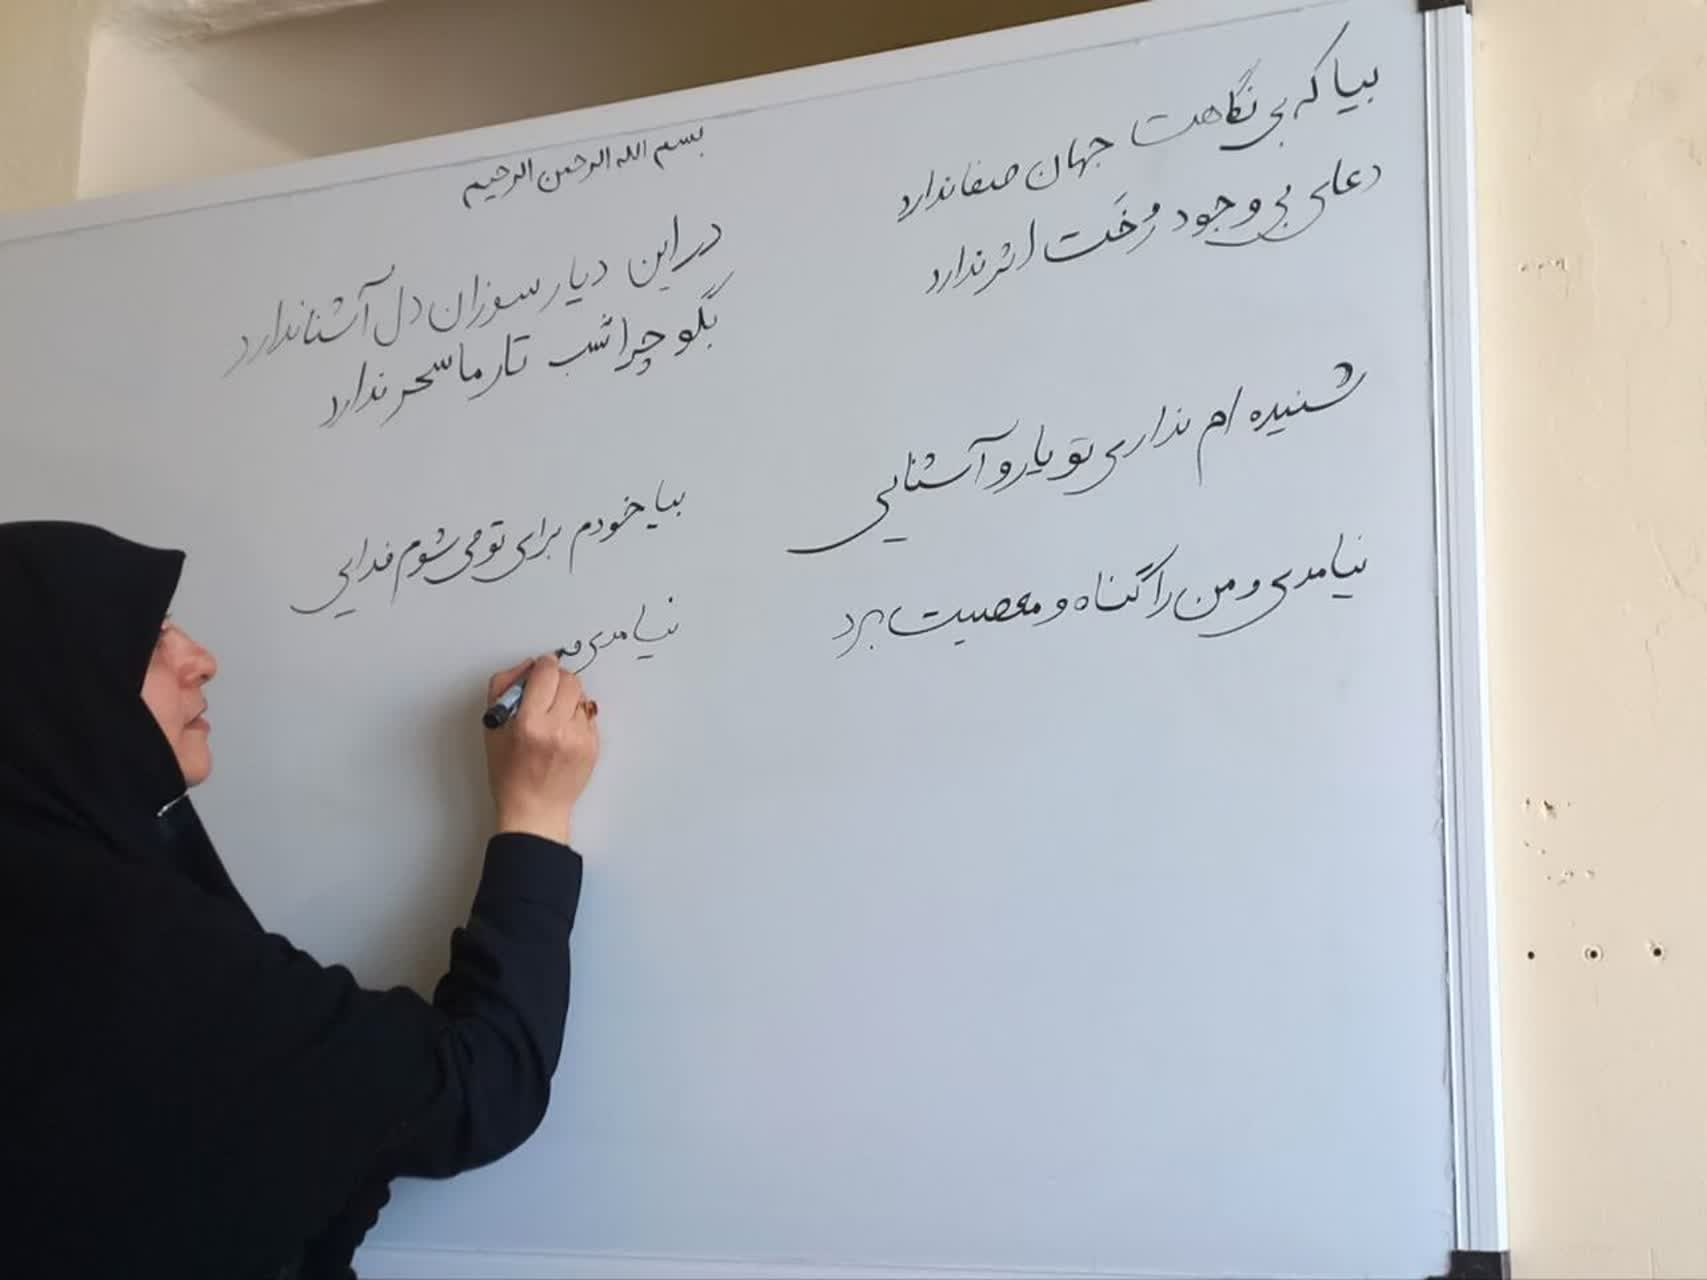 بسم الله الرحمن الرحیم
بیا که بی نگاهت جهان صفا ندارد
در این دیار سوزان دل آشنا ندارد
دعای بی وجود رخت اثر ندارد
بگو چرا شب تار ما سحر ندارد
شنیده ام نداری تو یار و آشنایی
بیا خودم برای تو می شوم فدایی
نیامدی و من را گناه و معصیت برد
نیامدی